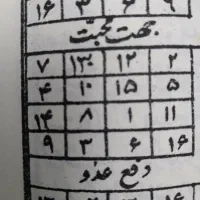 ۹ ۶ ۳ ۱۶
بجهت محبت
۲ ۱۲ ۱۳ ۷
۵ ۱۵ ۱۰ ۴
۱۱ ۱ ۸ ۱۴
۱۶ ۶ ۳ ۹
دفع عدو